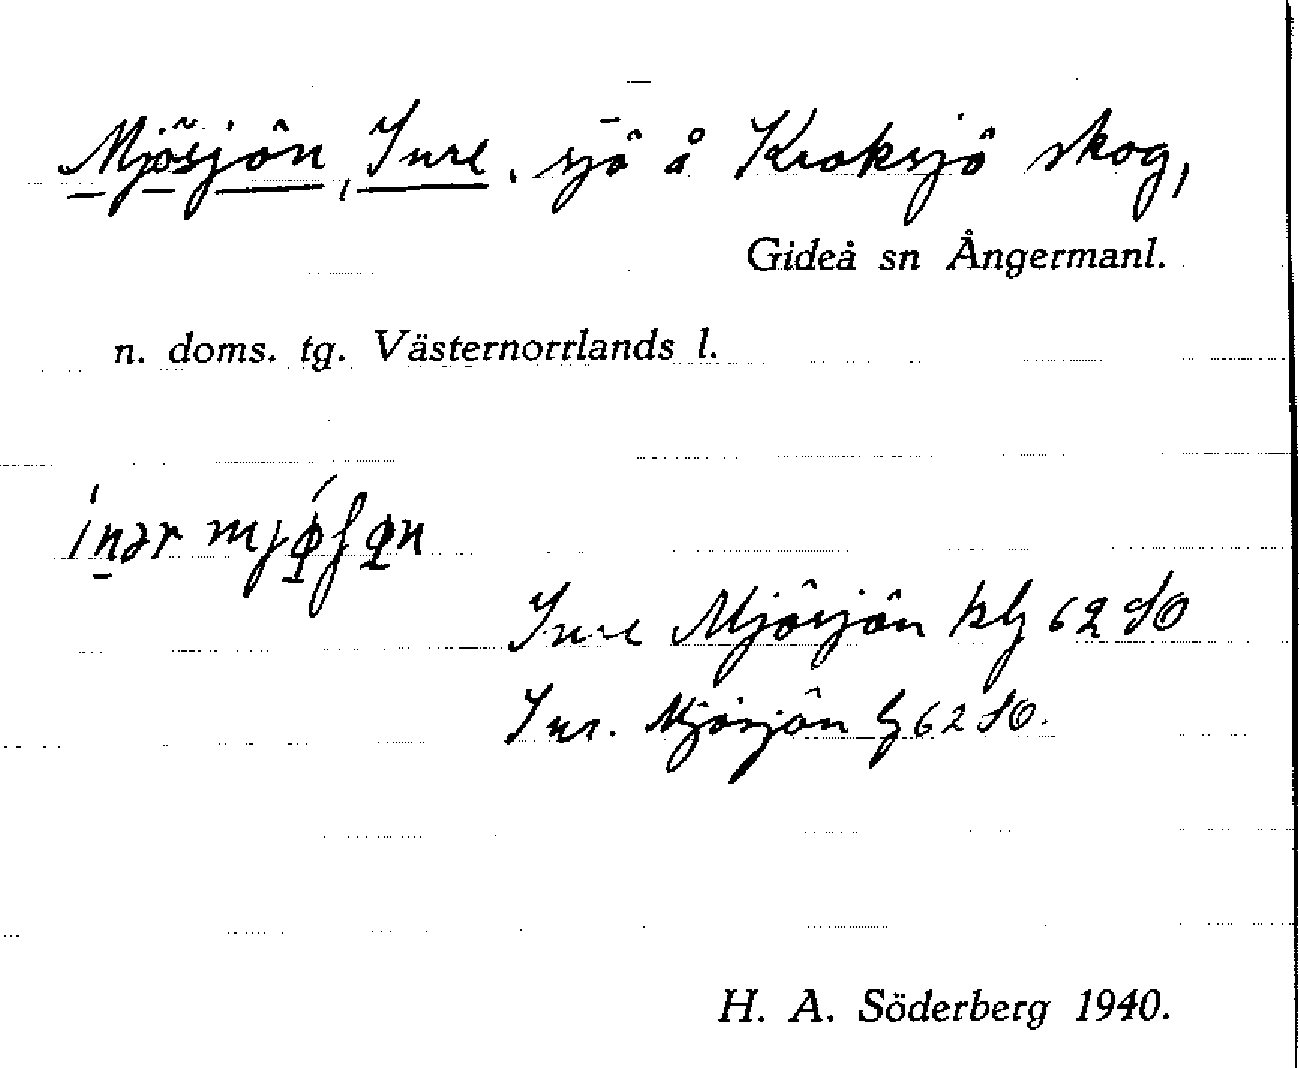 Mjösjön, Inre, sjö å Kroksjö skog,
Gideå sn Ångermanl.
n. doms. tg. Västernorrlands l.
Inre Mjösjön klg 62 SO
Inr. Mjösjön lg 62 SO.
H. A. Söderberg 1940.